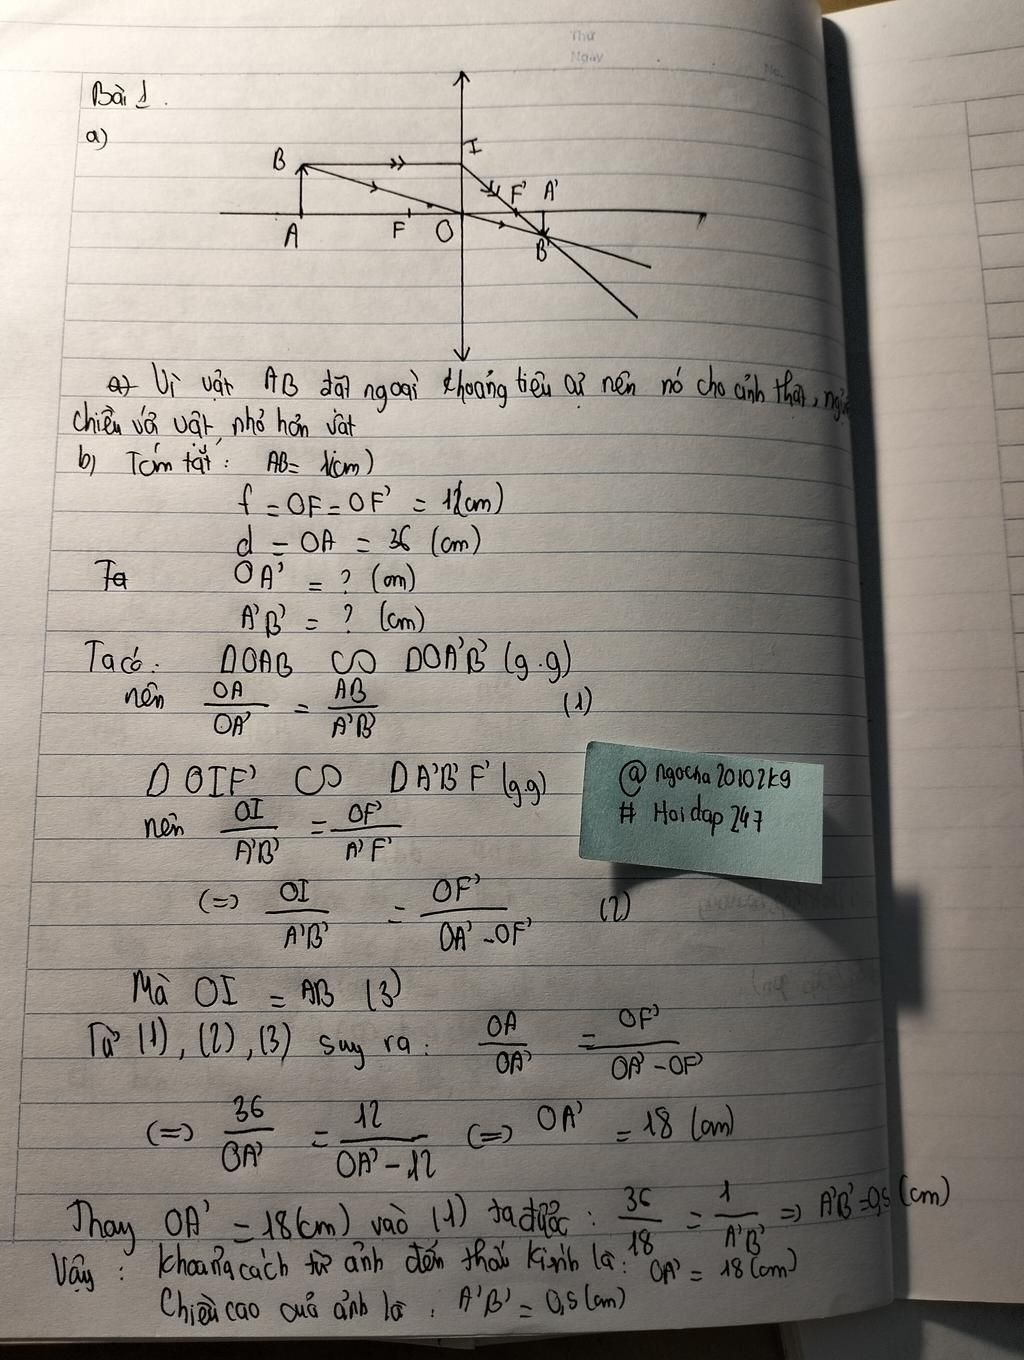 Thứ
Ngày
No.
Bài 1.
a)
B I F' A'
A F O B'
a) Vì vật AB đặt ngoài khoảng tiêu cự nên nó cho ảnh thật,
chiều với vật, nhỏ hơn vật
b) Tóm tắt: AB = 1(cm)
f = OF = OF' = 12(cm)
d = OA = 36 (cm)
Ta OA' = ? (cm)
A'B' = ? (cm)
Ta có: ΔOAB ∽ ΔOA'B' (g.g)
nên OA/OA' = AB/A'B' (1)
ΔOIF' ∽ ΔA'B'F' (g.g)
nên OI/A'B' = OF'/A'F'
@ngocha20102kg
# Hoidap247
(=) OI/A'B' = OF'/OA'-OF' (2)
Mà OI = AB (3)
Từ (1), (2), (3) suy ra: OA/OA' = OF'/OA'-OF'
(=) 36/OA' = 12/OA'-12 (=) OA' = 18 (cm)
Thay OA' = 18(cm) vào (1) ta được: 36/18 = 1/A'B' => A'B' = 0,5 (cm)
Vậy: Khoảng cách từ ảnh đến thấu kính là: OA' = 18 (cm)
Chiều cao của ảnh là: A'B' = 0,5 (cm)